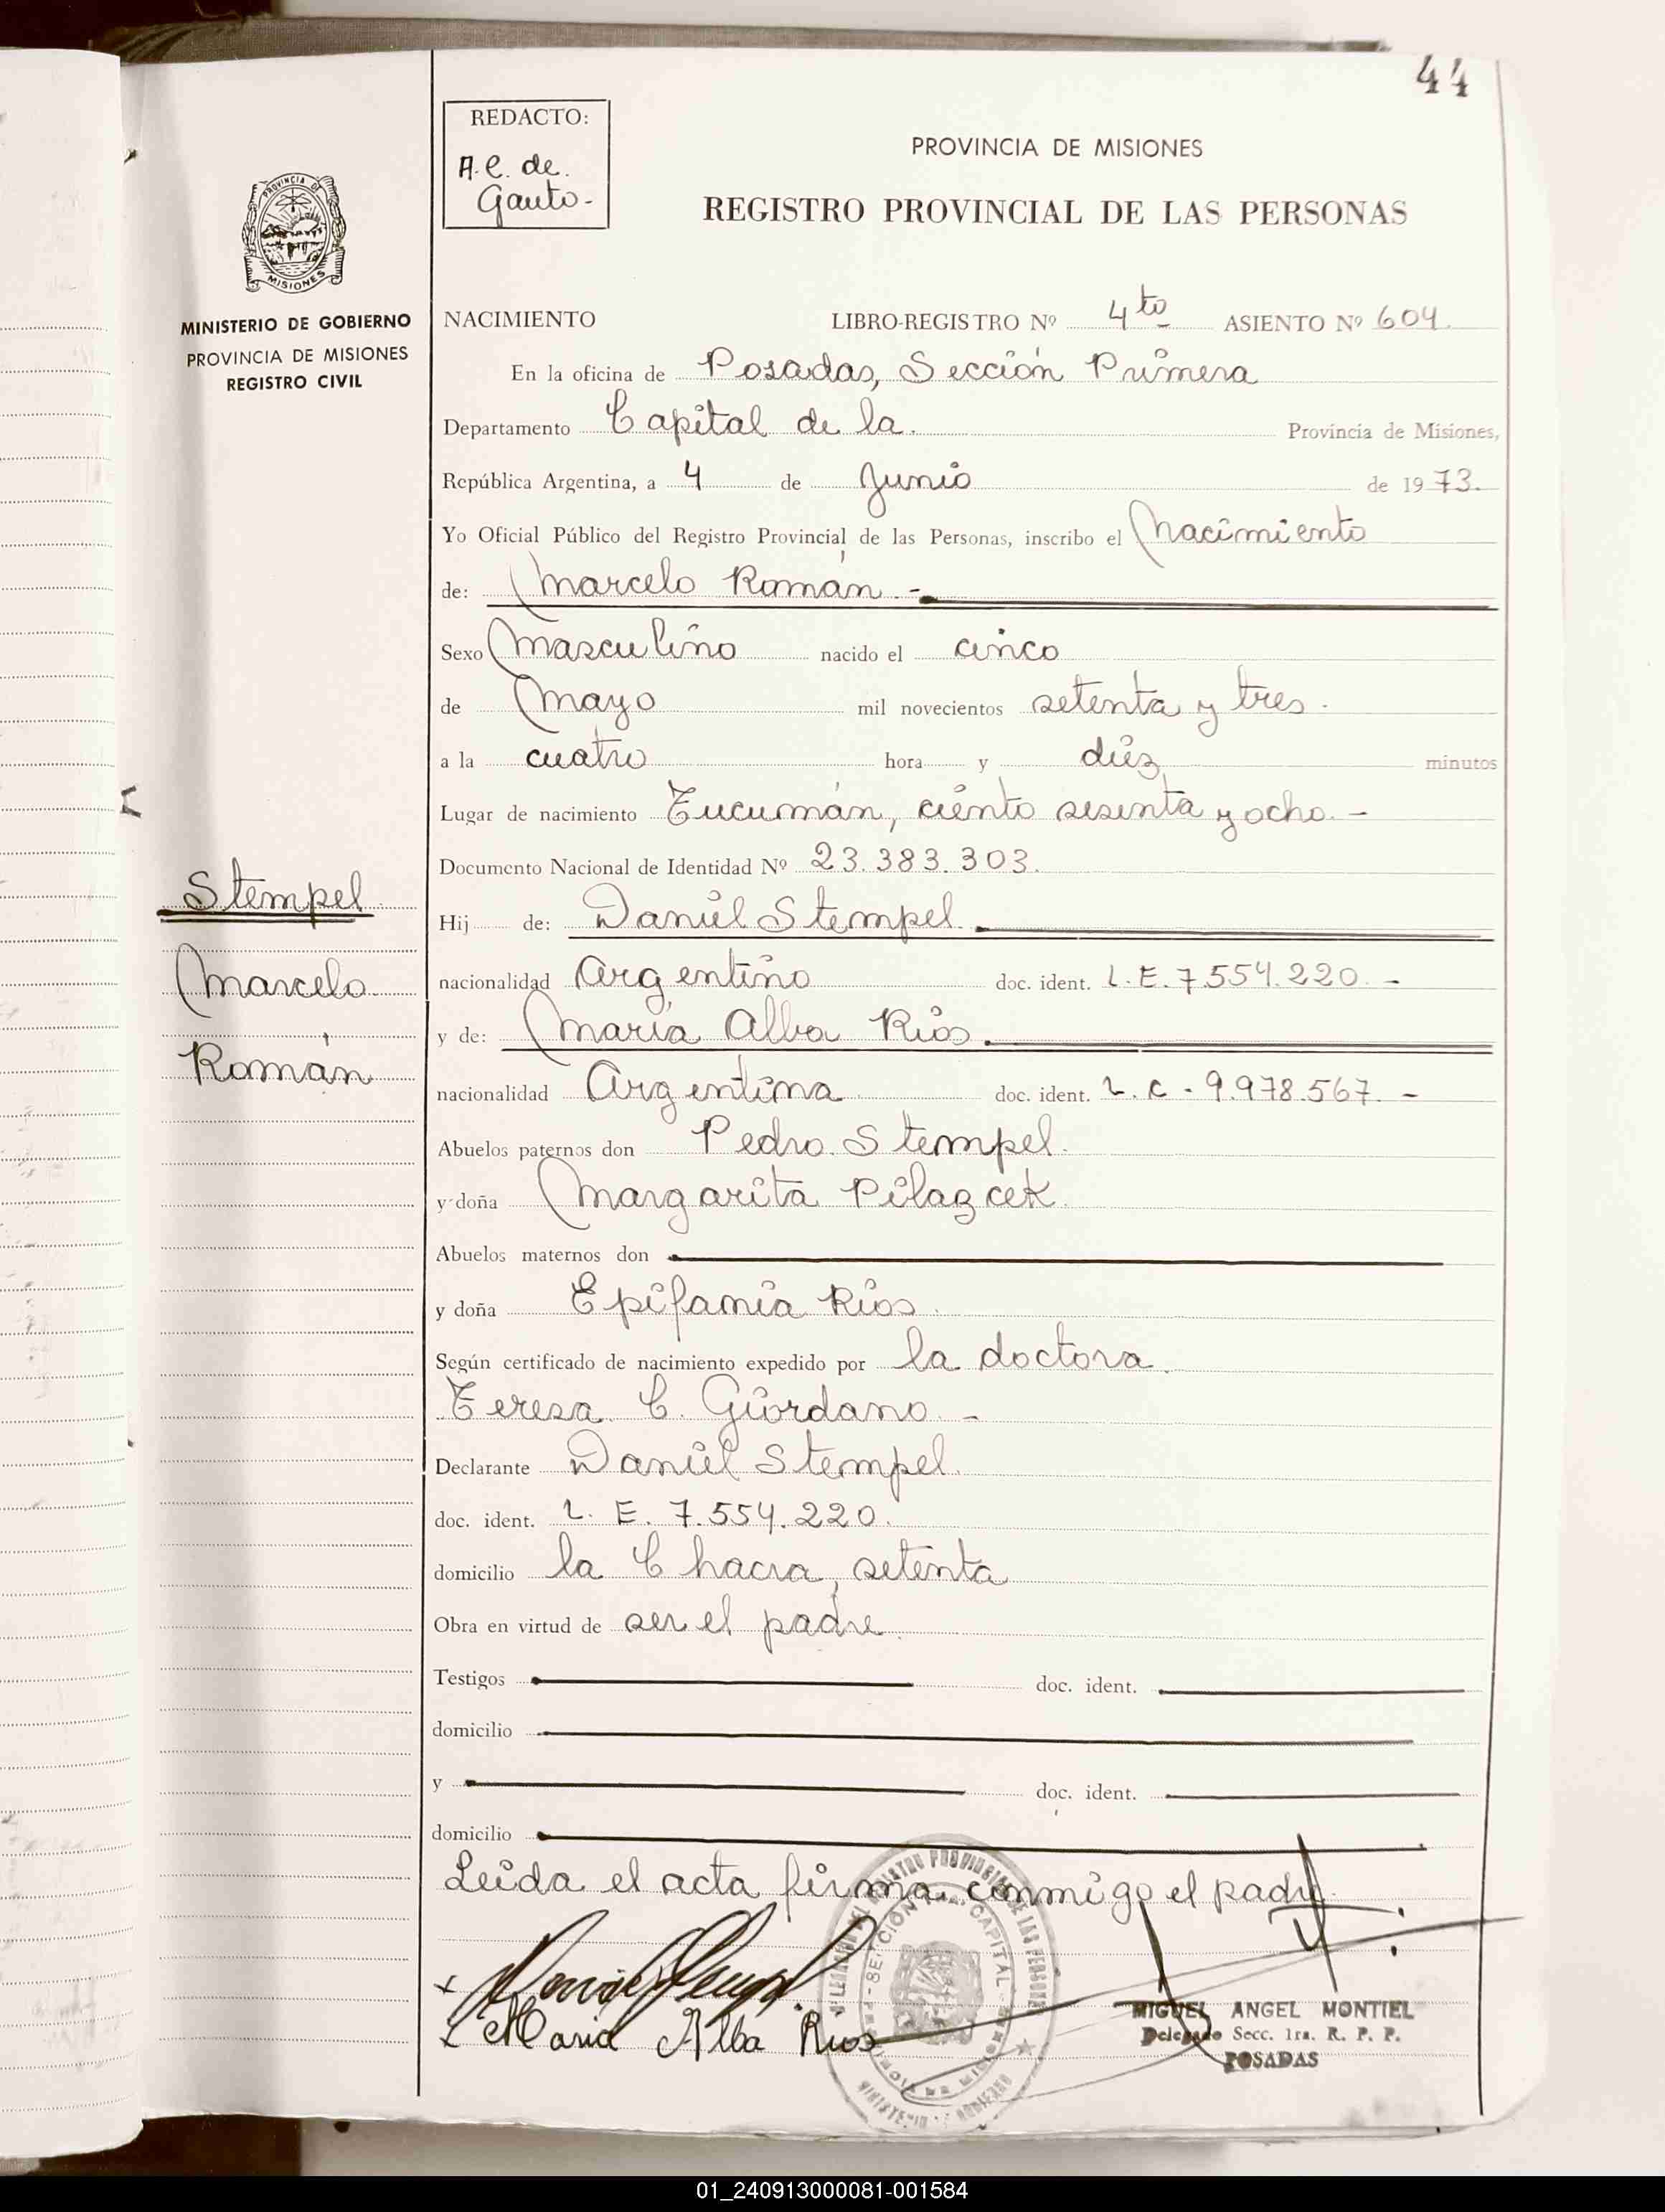 44
REDACTO:
A. C. de.
Gauto-
PROVINCIA DE MISIONES
REGISTRO PROVINCIAL DE LAS PERSONAS
PROVINCIA DE
MISIONES
MINISTERIO DE GOBIERNO
PROVINCIA DE MISIONES
REGISTRO CIVIL
NACIMIENTO LIBRO-REGISTRO Nº 4to ASIENTO Nº 604.
En la oficina de Posadas, Sección Primera
Departamento Capital de la. Provincia de Misiones,
República Argentina, a 4 de Junio de 1973.
Yo Oficial Público del Registro Provincial de las Personas, inscribo el Nacimiento
de: Marcelo Román.-
Sexo Masculino nacido el cinco
de Mayo mil novecientos setenta y tres.
a la cuatro hora y diez minutos
Lugar de nacimiento Tucumán, ciento sesenta y ocho.-
Documento Nacional de Identidad Nº 23.383.303.
Stempel
Marcelo
Román
Hij de: Daniel Stempel.
nacionalidad Argentino doc. ident. L.E.7.554.220.-
y de: María Alba Ríos.
nacionalidad Argentina doc. ident. L.C-9.978.567.-
Abuelos paternos don Pedro Stempel.
y doña Margarita Pilazcek.
Abuelos maternos don
y doña Epifania Ríos.
Según certificado de nacimiento expedido por la doctora
Teresa C. Giordano.-
Declarante Daniel Stempel.
doc. ident. L. E. 7.554.220.
domicilio la Chacra, setenta
Obra en virtud de ser el padre.
Testigos doc. ident.
domicilio
y doc. ident.
domicilio
Leída el acta firma conmigo el padre.
x
x Maria Alba Rios
MIGUEL ANGEL MONTIEL
Delegado Secc. 1ra. R. P. P.
POSADAS
01_240913000081-001584